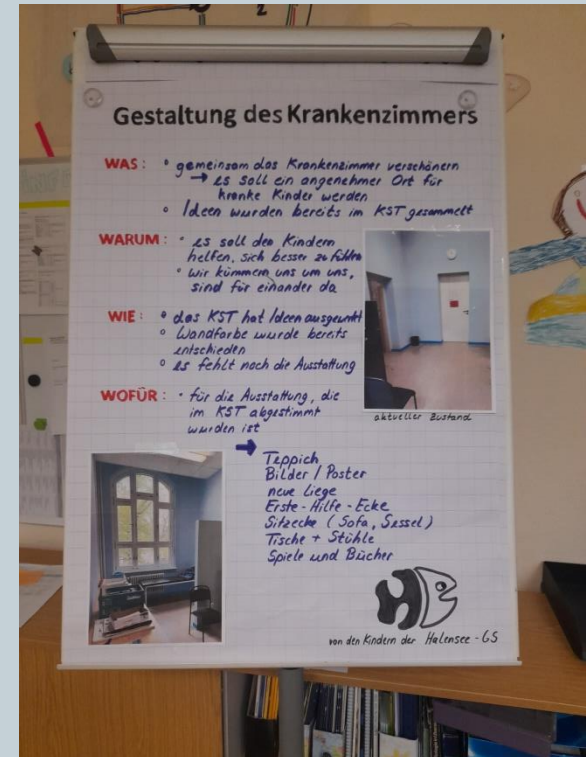 2
Gestaltung des Krankenzimmers
WAS: ° gemeinsam das Krankenzimmer verschönern
→ es soll ein angenehmer Ort für
kranke Kinder werden
° Ideen wurden bereits im KST gesammelt
WARUM: • es soll den Kindern
helfen, sich besser zu fühlen
• wir kümmern uns um uns,
sind für einander da
WIE: • das KST hat Ideen ausgewählt
° Wandfarbe wurde bereits
entschieden
° es fehlt noch die Ausstattung
aktueller Zustand
WOFÜR: • für die Ausstattung, die
im KST abgestimmt
worden ist
→ Teppich
Bilder / Poster
neue Liege
Erste-Hilfe-Ecke
Sitzecke (Sofa, Sessel)
Tische + Stühle
Spiele und Bücher
von den Kindern der Halensee-GS